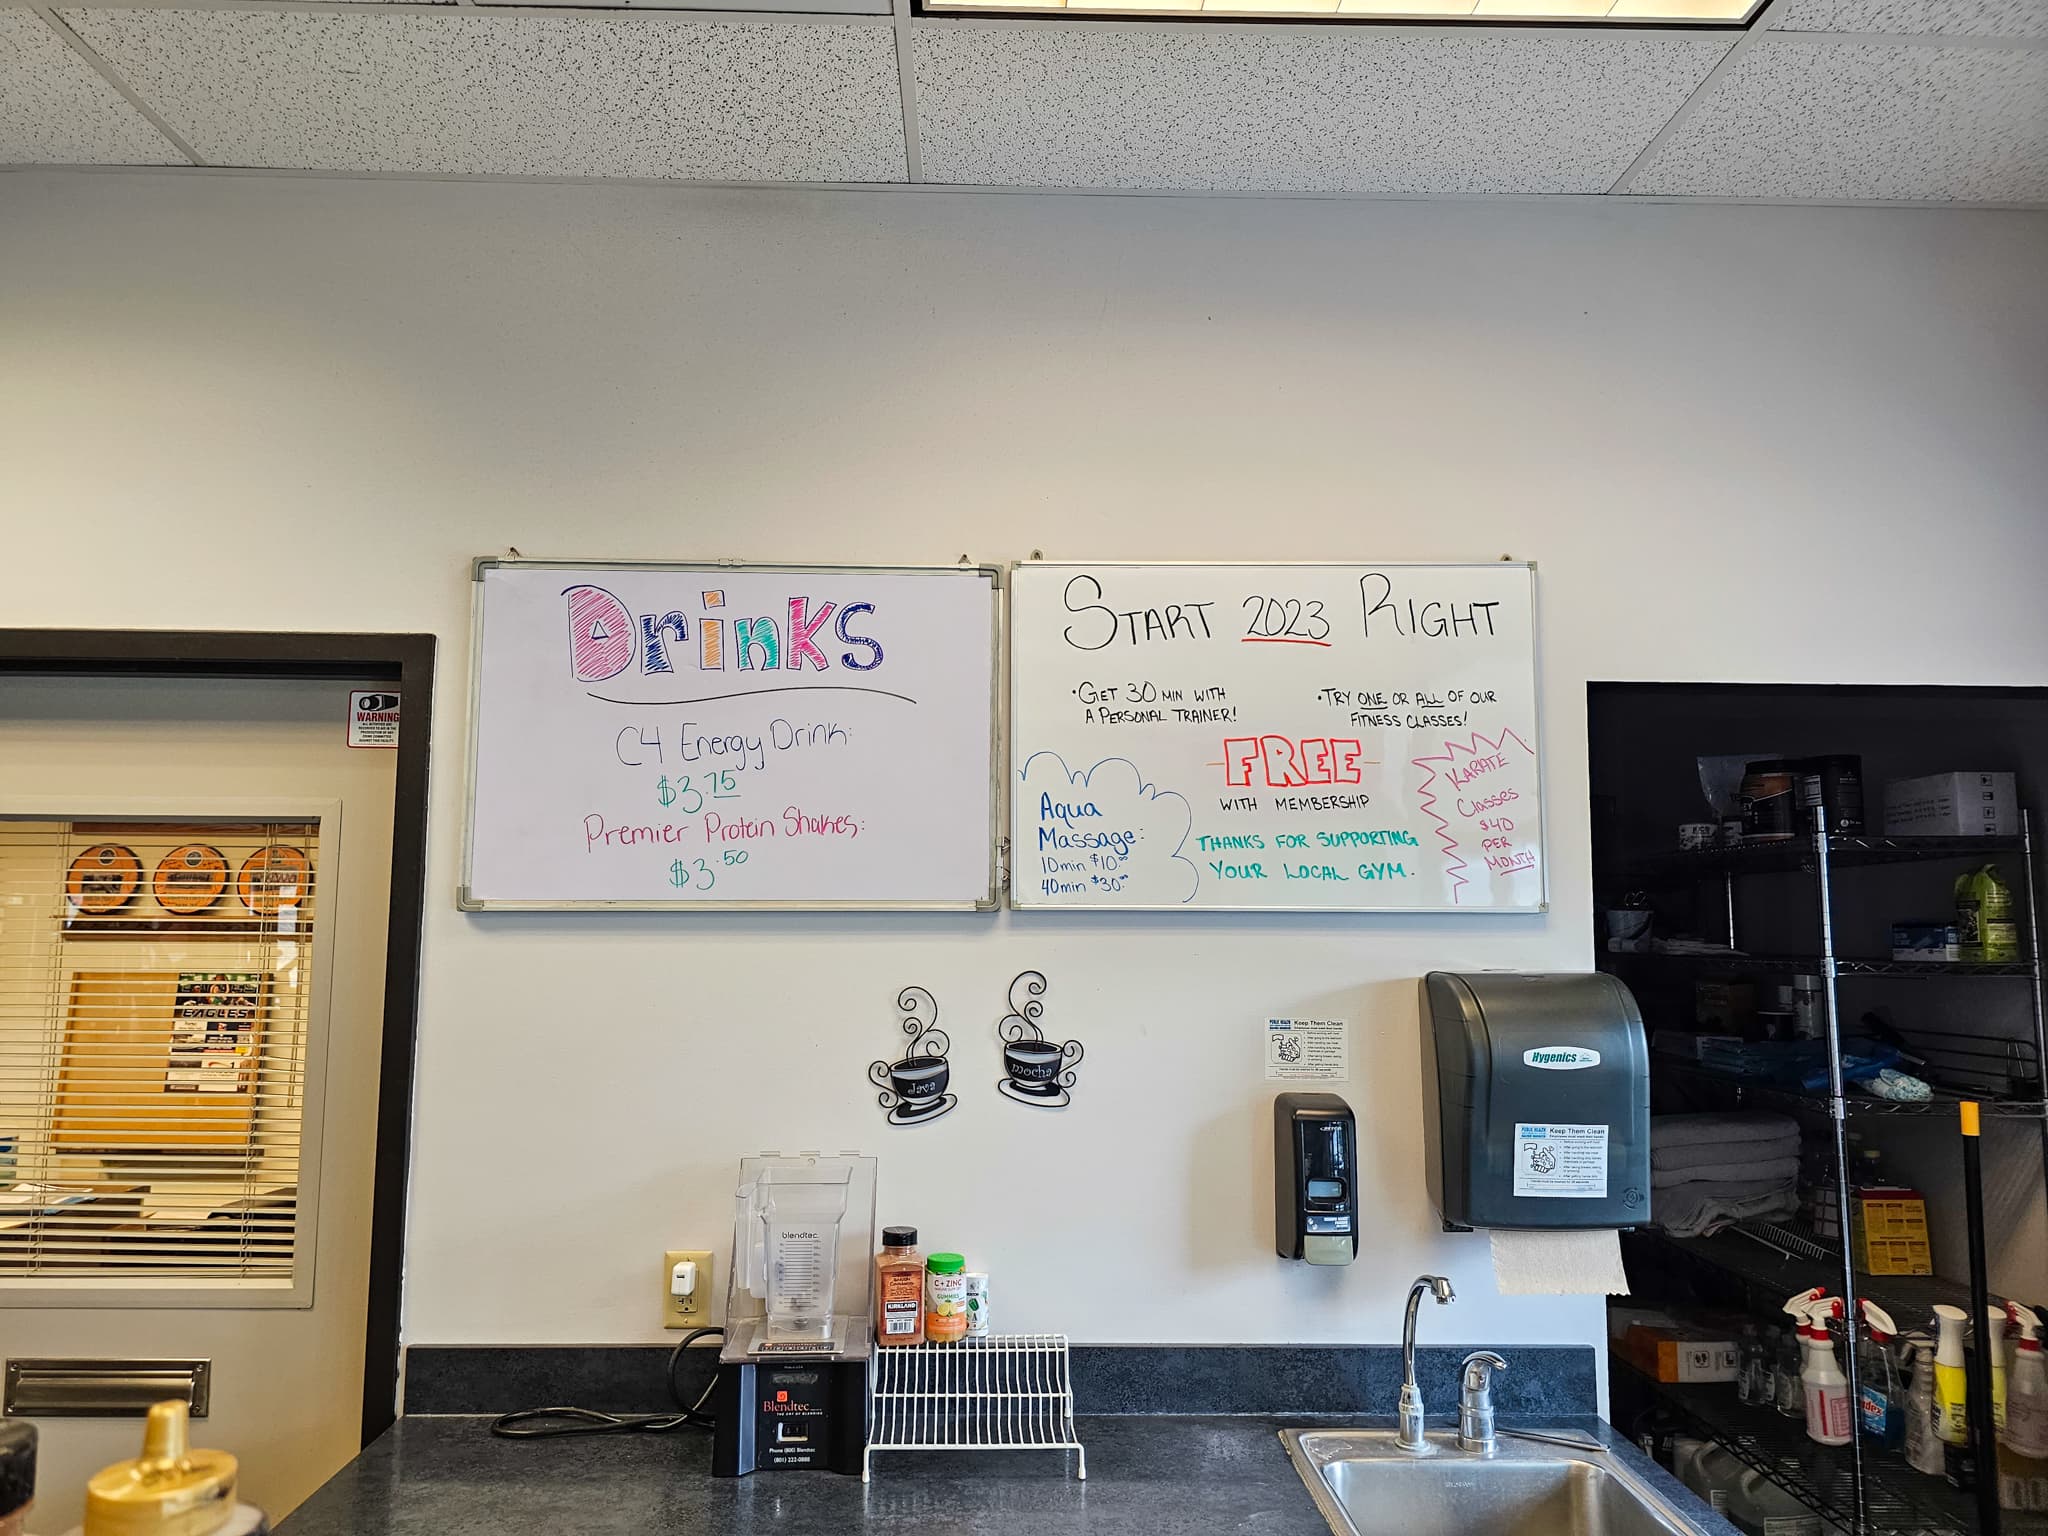 Drinks
C4 Energy Drink:
$3.75
Premier Protein Shakes:
$3.50
START 2023 RIGHT
• GET 30 MIN WITH
A PERSONAL TRAINER!
• TRY ONE OR ALL OF OUR
FITNESS CLASSES!
FREE
WITH MEMBERSHIP
THANKS FOR SUPPORTING
YOUR LOCAL GYM.
Aqua
Massage:
10min $10.00
40min $30.00
KARATE
Classes
$40
PER
MONTH
WARNING
EAGLES
Java
mocha
PUBLIC HEALTH
Keep Them Clean
Hygenics
PUBLIC HEALTH
Keep Them Clean
blendtec
KIRKLAND
C + ZINC
GUMMIES
Blendtec
THE ART OF BLENDING
Phone (800) Blendtec
(801) 222-0888